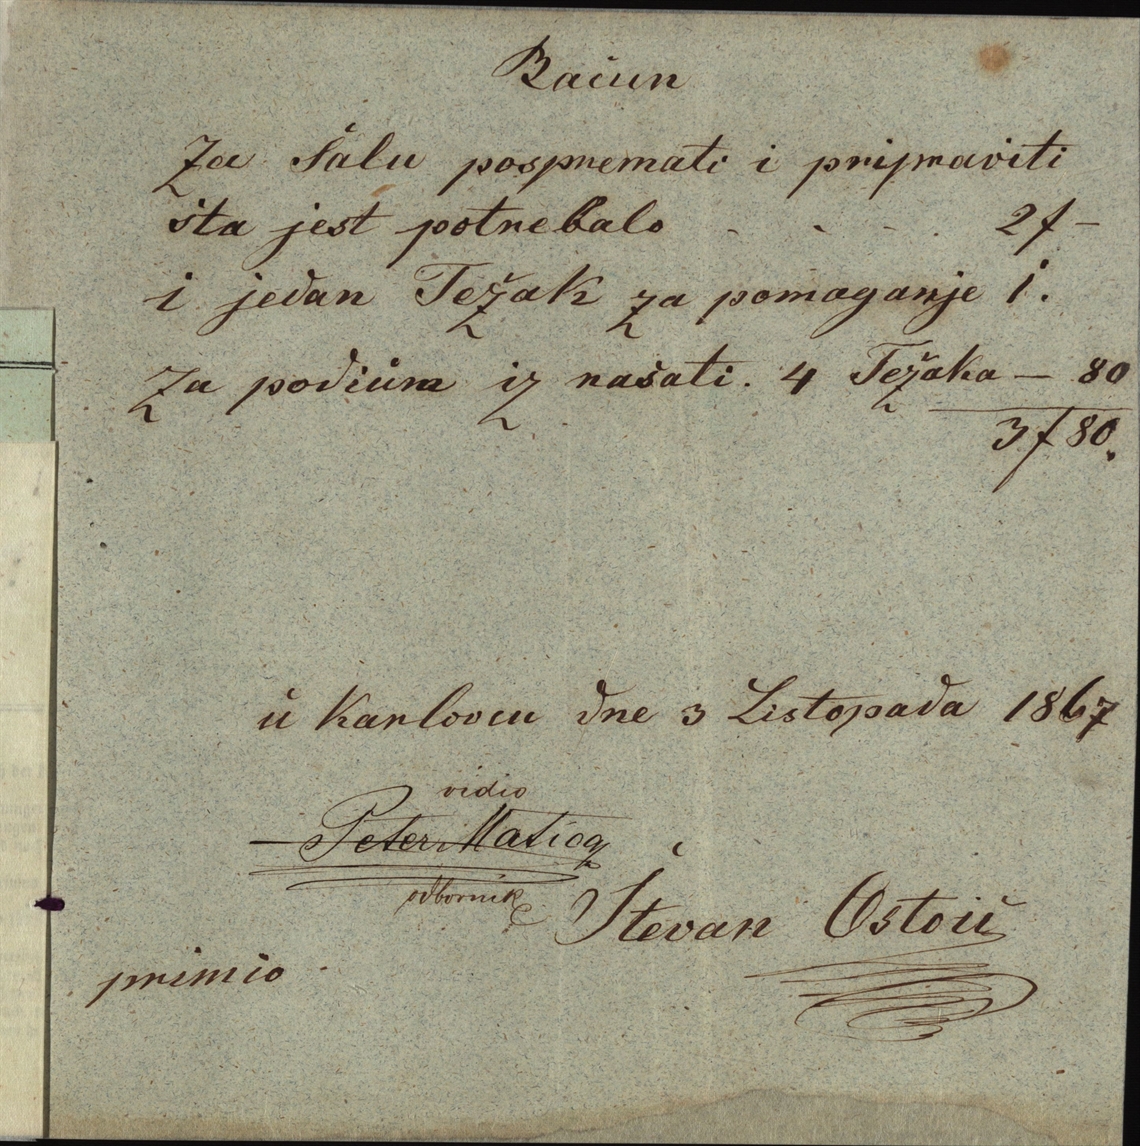 Račun
Za Šalu pospremati i pripraviti
šta jest potrebalo . . . . 2f –
i jedan Težak za pomaganje 1.
Za podium iz našati. 4 Težaka – 80
3f 80.
u Karlovcu dne 3 Listopada 1867
vidio
Peter Maticq
odbornik
Števan Ostoić
primio